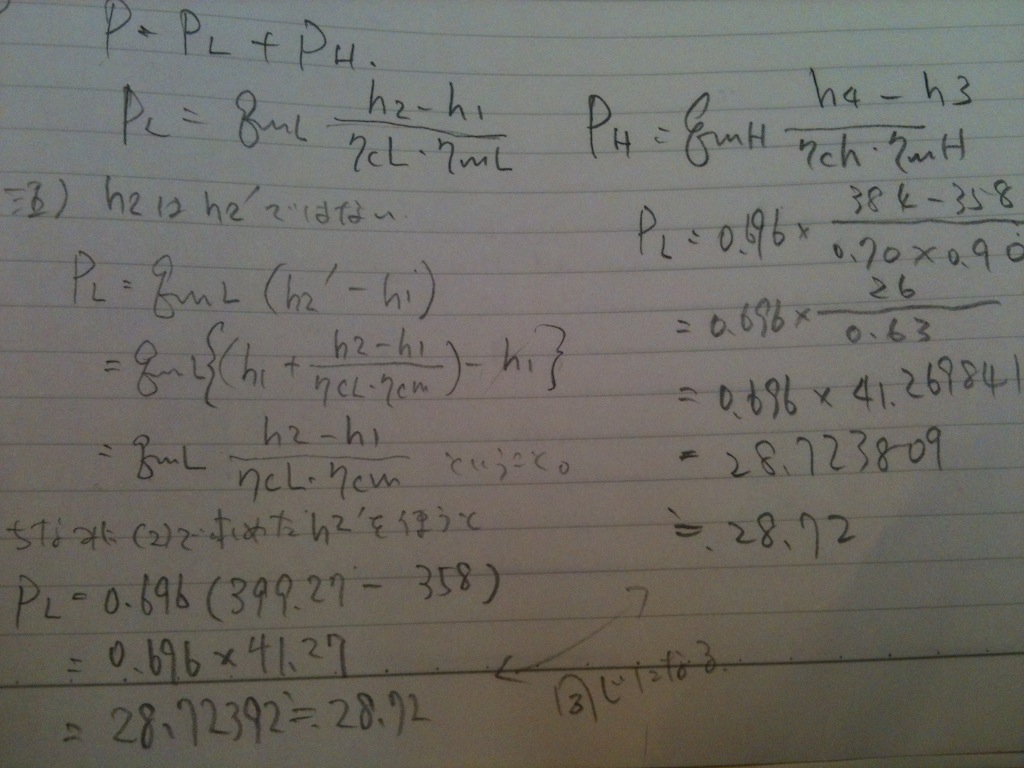 P = PL + PH.
PL = qmL (h2 - h1)/(ηcL・ηmL)
PH = qmH (h4 - h3)/(ηch・ηmH)
注) h2はh2'ではない.
PL = qmL (h2' - h1)
= qmL{(h1 + (h2 - h1)/(ηcL・ηcm)) - h1}
= qmL (h2 - h1)/(ηcL・ηcm) ということ。
ちなみに(2)で求めたh2'を使うと
PL = 0.696 (399.27 - 358)
= 0.696 × 41.27
= 28.72392 ≒ 28.72
PL = 0.696 × (384 - 358)/(0.70 × 0.90)
= 0.696 × 26/0.63
= 0.696 × 41.269841
= 28.723809
≒ 28.72
同じになる.